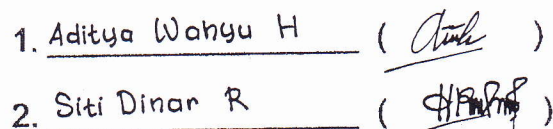 1. Aditya Wahyu H ( )
2. Siti Dinar R ( )